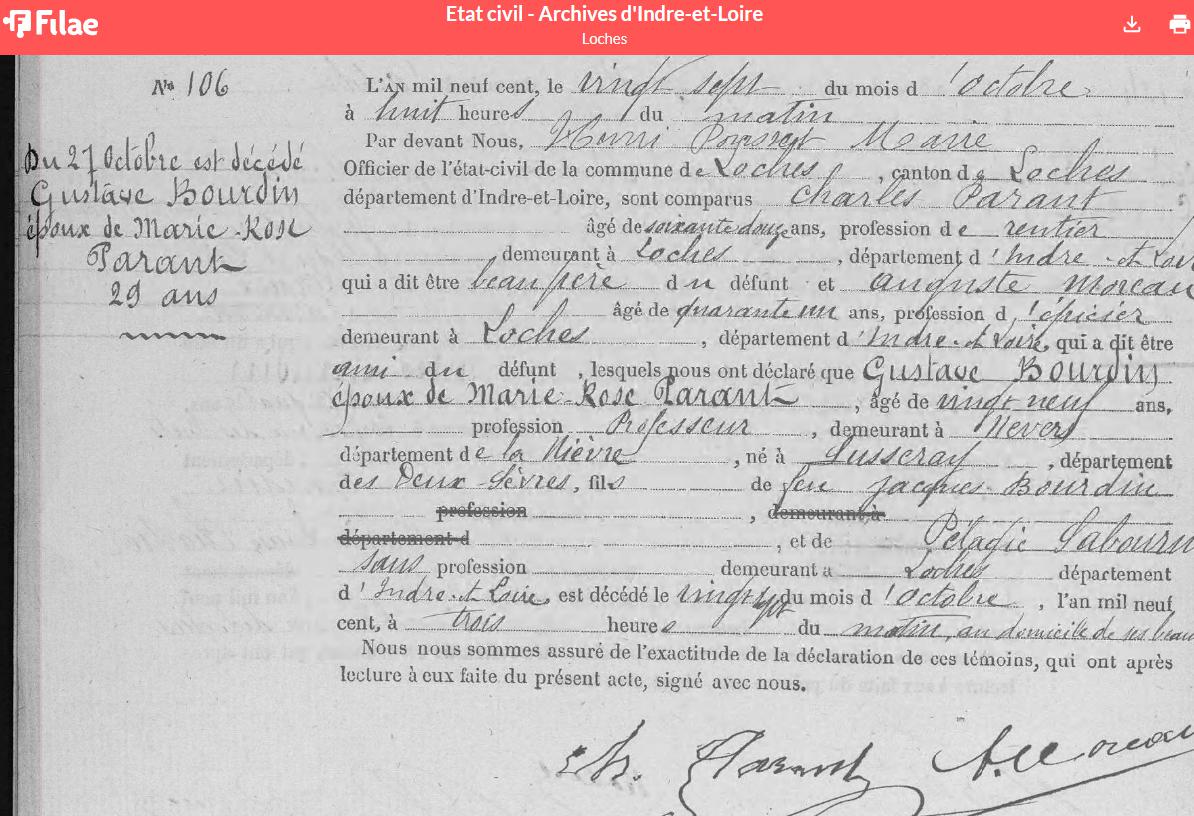 Filae
Etat civil - Archives d'Indre-et-Loire
Loches
N° 106
Du 27 Octobre est décédé
Gustave Bourdin
époux de Marie-Rose
Parant
29 ans
L'AN mil neuf cent, le vingt sept du mois d'octobre
à huit heures du matin
Par devant Nous, Henri Maire
Officier de l'état-civil de la commune de Loches, canton de Loches
département d'Indre-et-Loire, sont comparus Charles Parant
âgé de soixante douze ans, profession de rentier
demeurant à Loches, département d'Indre-et-Loire
qui a dit être beau père du défunt et Auguste Moreau
âgé de quarante un ans, profession d'épicier
demeurant à Loches, département d'Indre-et-Loire, qui a dit être
ami du défunt, lesquels nous ont déclaré que Gustave Bourdin
époux de Marie-Rose Parant, âgé de vingt neuf ans,
profession Professeur, demeurant à Nevers
département de la Nièvre, né à Lusseray, département
des Deux-Sèvres, fils de feu Jacques Bourdin
profession, demeurant à
département d, et de Pélagie Sabourin
sans profession demeurant à Loches département
d'Indre-et-Loire, est décédé le vingt sept du mois d'octobre, l'an mil neuf
cent, à trois heures du matin, au domicile de ses beau
Nous nous sommes assuré de l'exactitude de la déclaration de ces témoins, qui ont après
lecture à eux faite du présent acte, signé avec nous.
Ch. Parant A. Moreau